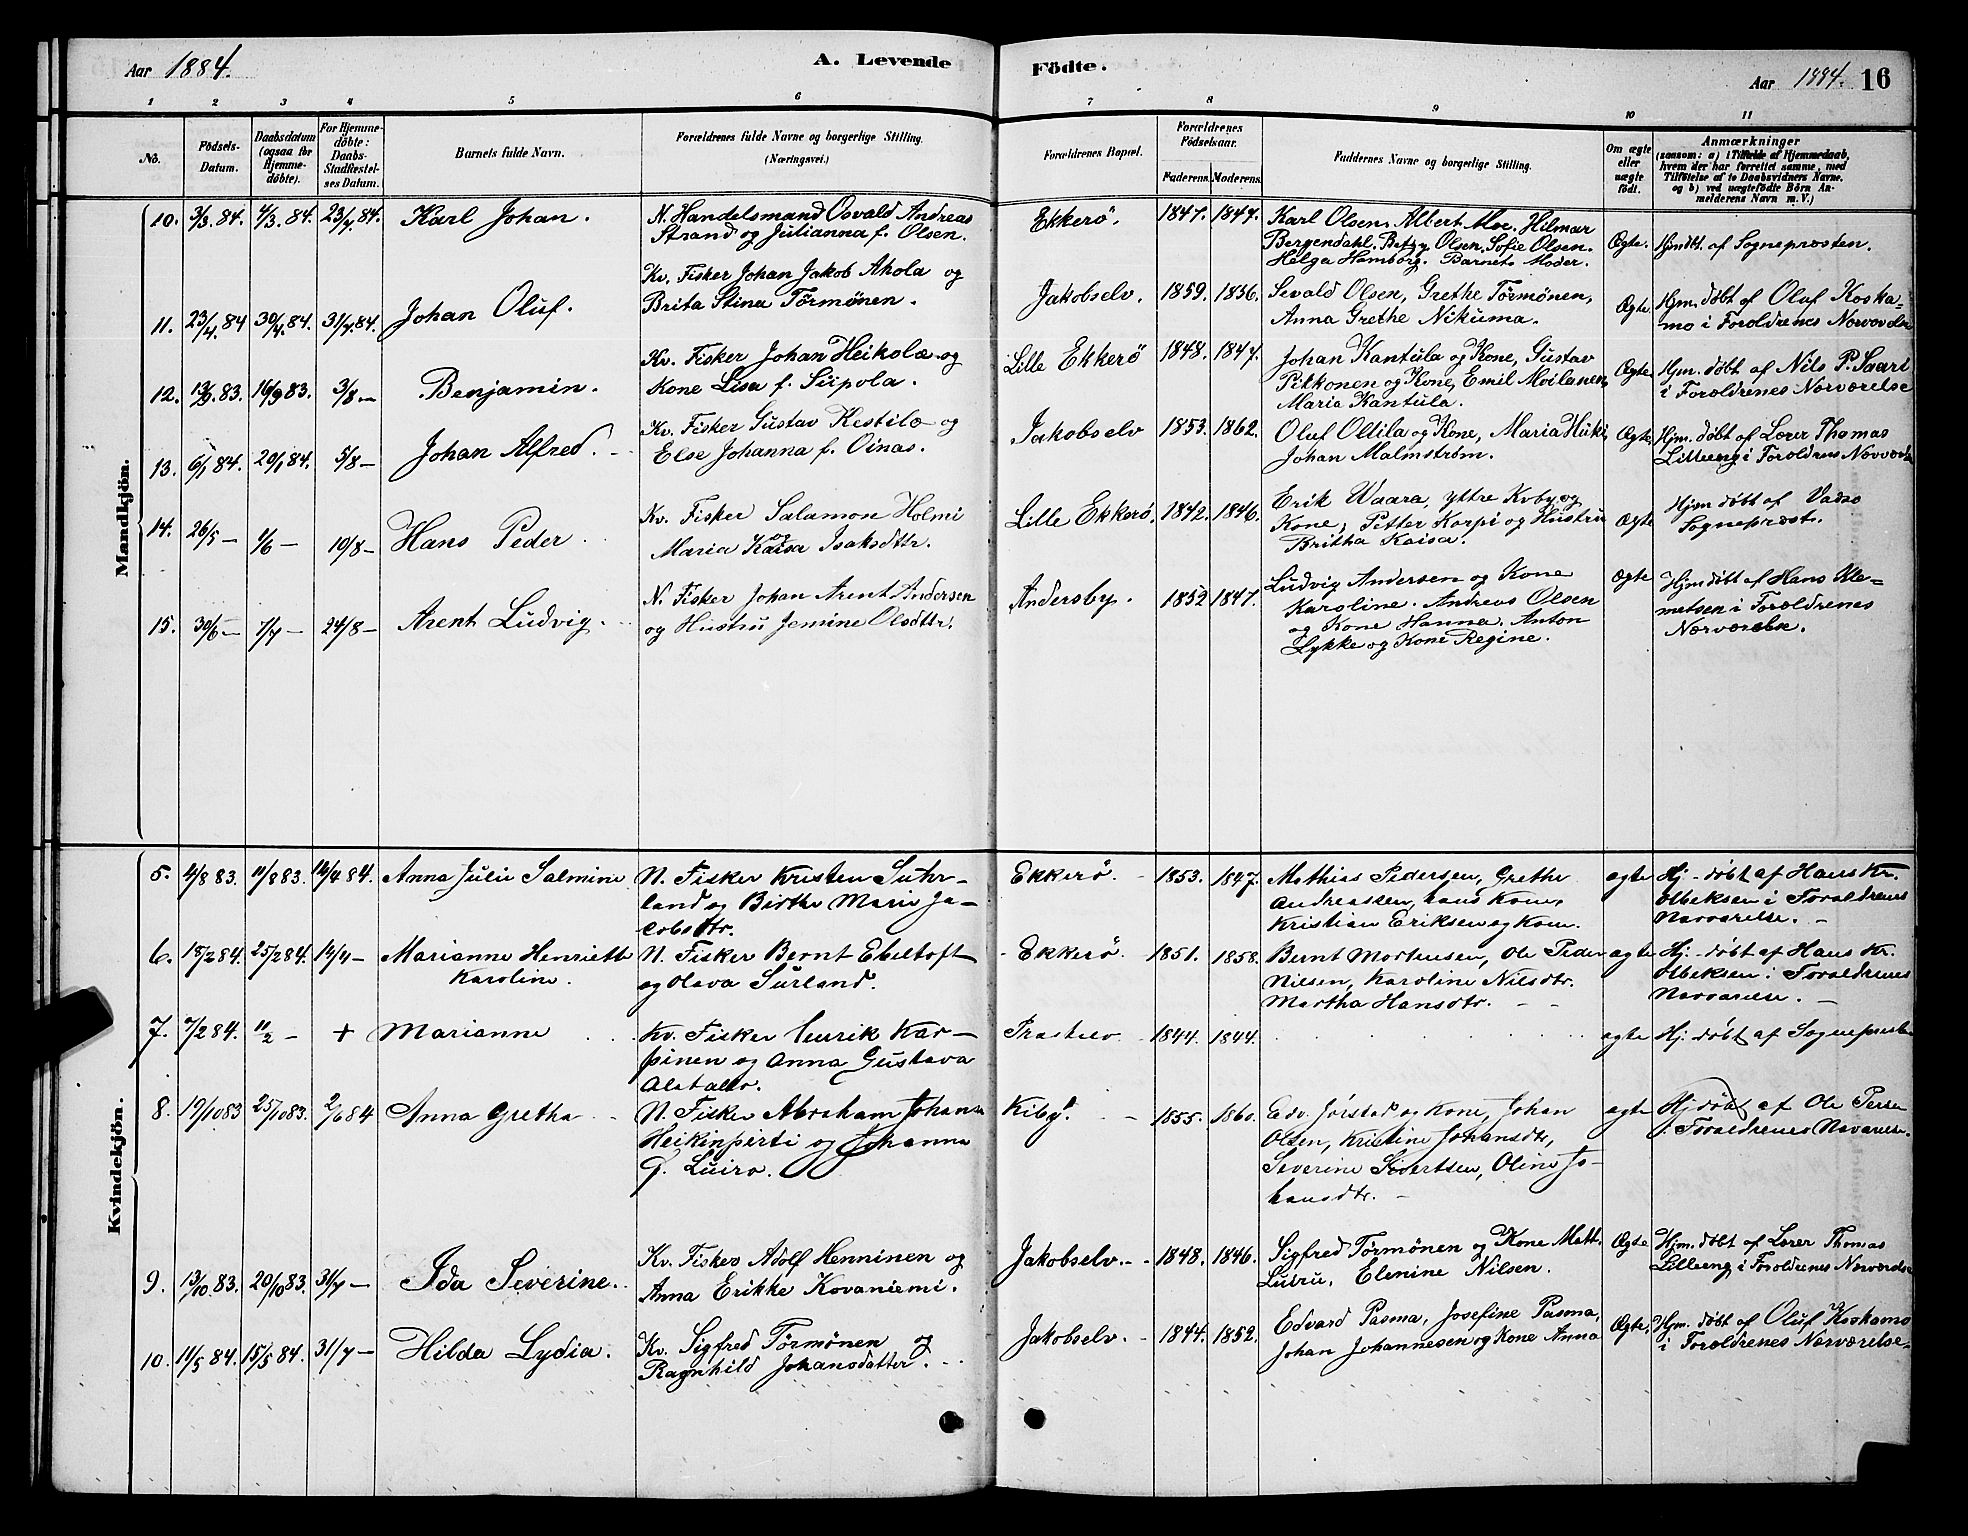 Aar 1884. A. Levende Födte. Aar 1884. 16
1 2 3 4 5 6 7 8 9 10 11
No. Födsels-Datum. Daabsdatum (ogsaa for Hjemmedöbte). For Hjemmedöbte: Daabs-Stadfæstelses Datum. Barnets fulde Navn. Forældrenes fulde Navne og borgerlige Stilling. (Næringsvei.) Forældrenes Bopæl. Forældrenes Födselsaar. Faderens. Moderens. Faddernes Navne og borgerlige Stilling. Om ægte eller uægte födt. Anmærkninger (saasom: a) i Tilfælde af Hjemmedaab, hvem der har forrettet samme, med Tilföielse af to Daabsvidners Navne, og b) ved uægtefödte Börn Anmelderens Navn m. V.)
Mandkjön.
10. 3/3. 84. 4/3. 84. 23/4. 84. Karl Johan. N. Handelsmand Osvald Andreas Ekkerö. 1847. 1847. Karl Olsen, Albert Moe. Hilmar
Strand og Julianna f. Olsen. Bergendahl. Betzy Olsen. Sofie Olsen. Ægte. Hjmdbt. af Sognepræsten.
Helga Hamborg. Barnets Moder.
Kv. Fisker Johan Jakob Ahola og
11. 23/4 84 30/4. 84. 31/7. 84. Johan Oluf. Brita Stina Törmönen. Jakobselv. 1859. 1856. Sevald Olsen, Grethe Törmönen, Ægte. Hjm. døbt af Oluf Koska-
Anna Grethe Nikuma. mo i Foroldrenes Norvordse
Kv. Fisker Johan Heikolæ og Lille Ekkerö 1848. 1847. Johan Kantula og Kone, Gustav
12. 13/9. 83. 16/9 83. 3/8 — Benjamin. Kone Lisa f. Siipola. Pikkonen og Kone, Emil Moilanen, Ægte Hjm. døbt af Nils P. Saari
Maria Kantula. i Foroldrenes Norværelse
Kv. Fisker Gustav Kestilæ og Jakobselv 1853. 1862. Oluf Ollila og Kone, Maria Huki, Ægte. Hjm. døbt af Lærer Thomas
13. 6/1 84. 20/1 84. 5/8 — Johan Alfred. Else Johanna f. Oinas. Johan Malmström. Lilleeng i Foroldrens Norvordse
14. 26/5 — 1/6 — 10/8 — Hans Peder Kv. Fisker Salamon Holmi og Lille Ekkerö. 1842. 1846. Erik Waara, yttre Kvby, og Ægte Hjm. døbt af Vadsø
Maria Kaisa Isaksdttr. Kone, Petter Korpi og Hustru Sognepræst.
Britha Kaisa.
N. Fisker Johan Arent Andersen Andersby. 1852 1847. Ludvig Andersen og Kone Ægte Hjm døbt af Hans Kle-
15. 30/6 — 1/7 — 24/8 — Arent Ludvig. og Hustru Jemine Olsdttr. Karoline. Andreas Olsen metsen i Foroldrenes
og Kone Hanna. Anton Norværelse.
Lykke og Kone Regine.
Kvindekjön.
5. 4/8 83. 11/8 83. 14/4 84. Anna Julie Salmine N. Fisker Kristen Suhr- Ekkerö. 1853. 1847. Mathias Pedersen, Grethe ægte Hj. døbt af Hans Kr.
land og Birthe Marie Ja- Andreassen, hans Kone, Olbeksen i Foraldrenes
cobsdtr. Kristian Eriksen og Kone. Narvarelse.
6. 18/2 84. 25/2 84. 14/4 — Marianne Henriette N. Fisker Bernt Ebeltoft Ekkerö. 1851. 1858. Bernt Mortensen, Ole Peder ægte Hj. døbt af Hans Kr.
Karoline. og Olava Surland. Nilsen, Karoline Nilsdtr. Olbeksen i Foraldrenes
Martha Hansdtr. Narvarelse.
7. 7/2 84. 11/2 — + Marianne Kv. Fisker Henrik Kar- 1844. 1844. ægte Hj. døbt af Sognepresten
pinen og Anna Gustava
8. 19/10 83 25/10 83. 2/6 84 Anna Gretha N. Fisker Abraham Johans Kiby. 1855. 1860. Edv. Jørstad og Kone, Johan ægte Hj døbt af Ole Persen
Heikinpirti og Johanna Olsen, Kristine Johansdtr, i Foraldrenes Navarelse.
G. Luiro. Severine Sivertsen, Oline Jo-
hansdtr.
Kv. Fisker Adolf Henninen og Jakobselv. 1848. 1846. Sigfred Törmönen og Kone Matt. Ægte Hjm. døbt af Lærer Thomas
9. 13/10. 83. 20/10 83. 31/7 — Ida Severine. Anna Erikke Kovaniemi. Luiru, Elenine Nilsen. Lilleeng i Foroldrenes Norværdse
Kv. Sigfred Törmönen og Jakobselv. 1844. 1852. Edvard Pasma, Josefine Pasma, Ægte. Hjm. døbt af Oluf Koskamo
10. 11/5 84. 15/5 84. 31/7 — Hilda Lydia. Ragnhild Johansdatter. Johan Johannesen og Kone Anna i Foroldrenes Norværelse.